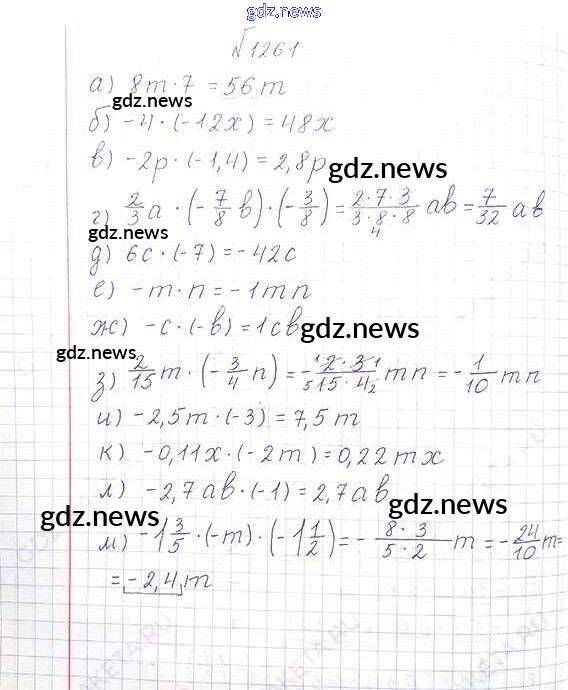 gdz.news
№1261
а) 8m · 7 = 56m
gdz.news
б) -4 · (-12x) = 48x
в) -2p · (-1,4) = 2,8p
gdz.news
г) 2/3 a · (-7/8 b) · (-3/8) = 2·7·3/3·8·8 4 ab = 7/32 ab
gdz.news
д) 6c · (-7) = -42c
е) -m · n = -1mn
ж) -c · (-b) = 1cb
gdz.news
gdz.news
з) 2/15 m · (-3/4 n) = - 1 2·3 1/5 15·4 2 mn = -1/10 mn
и) -2,5m · (-3) = 7,5m
к) -0,11x · (-2m) = 0,22mx
л) -2,7ab · (-1) = 2,7ab
gdz.news
gdz.news
м) -1 3/5 · (-m) · (-1 1/2) = - 8·3/5·2 m = -24/10 m=
= -2,4m